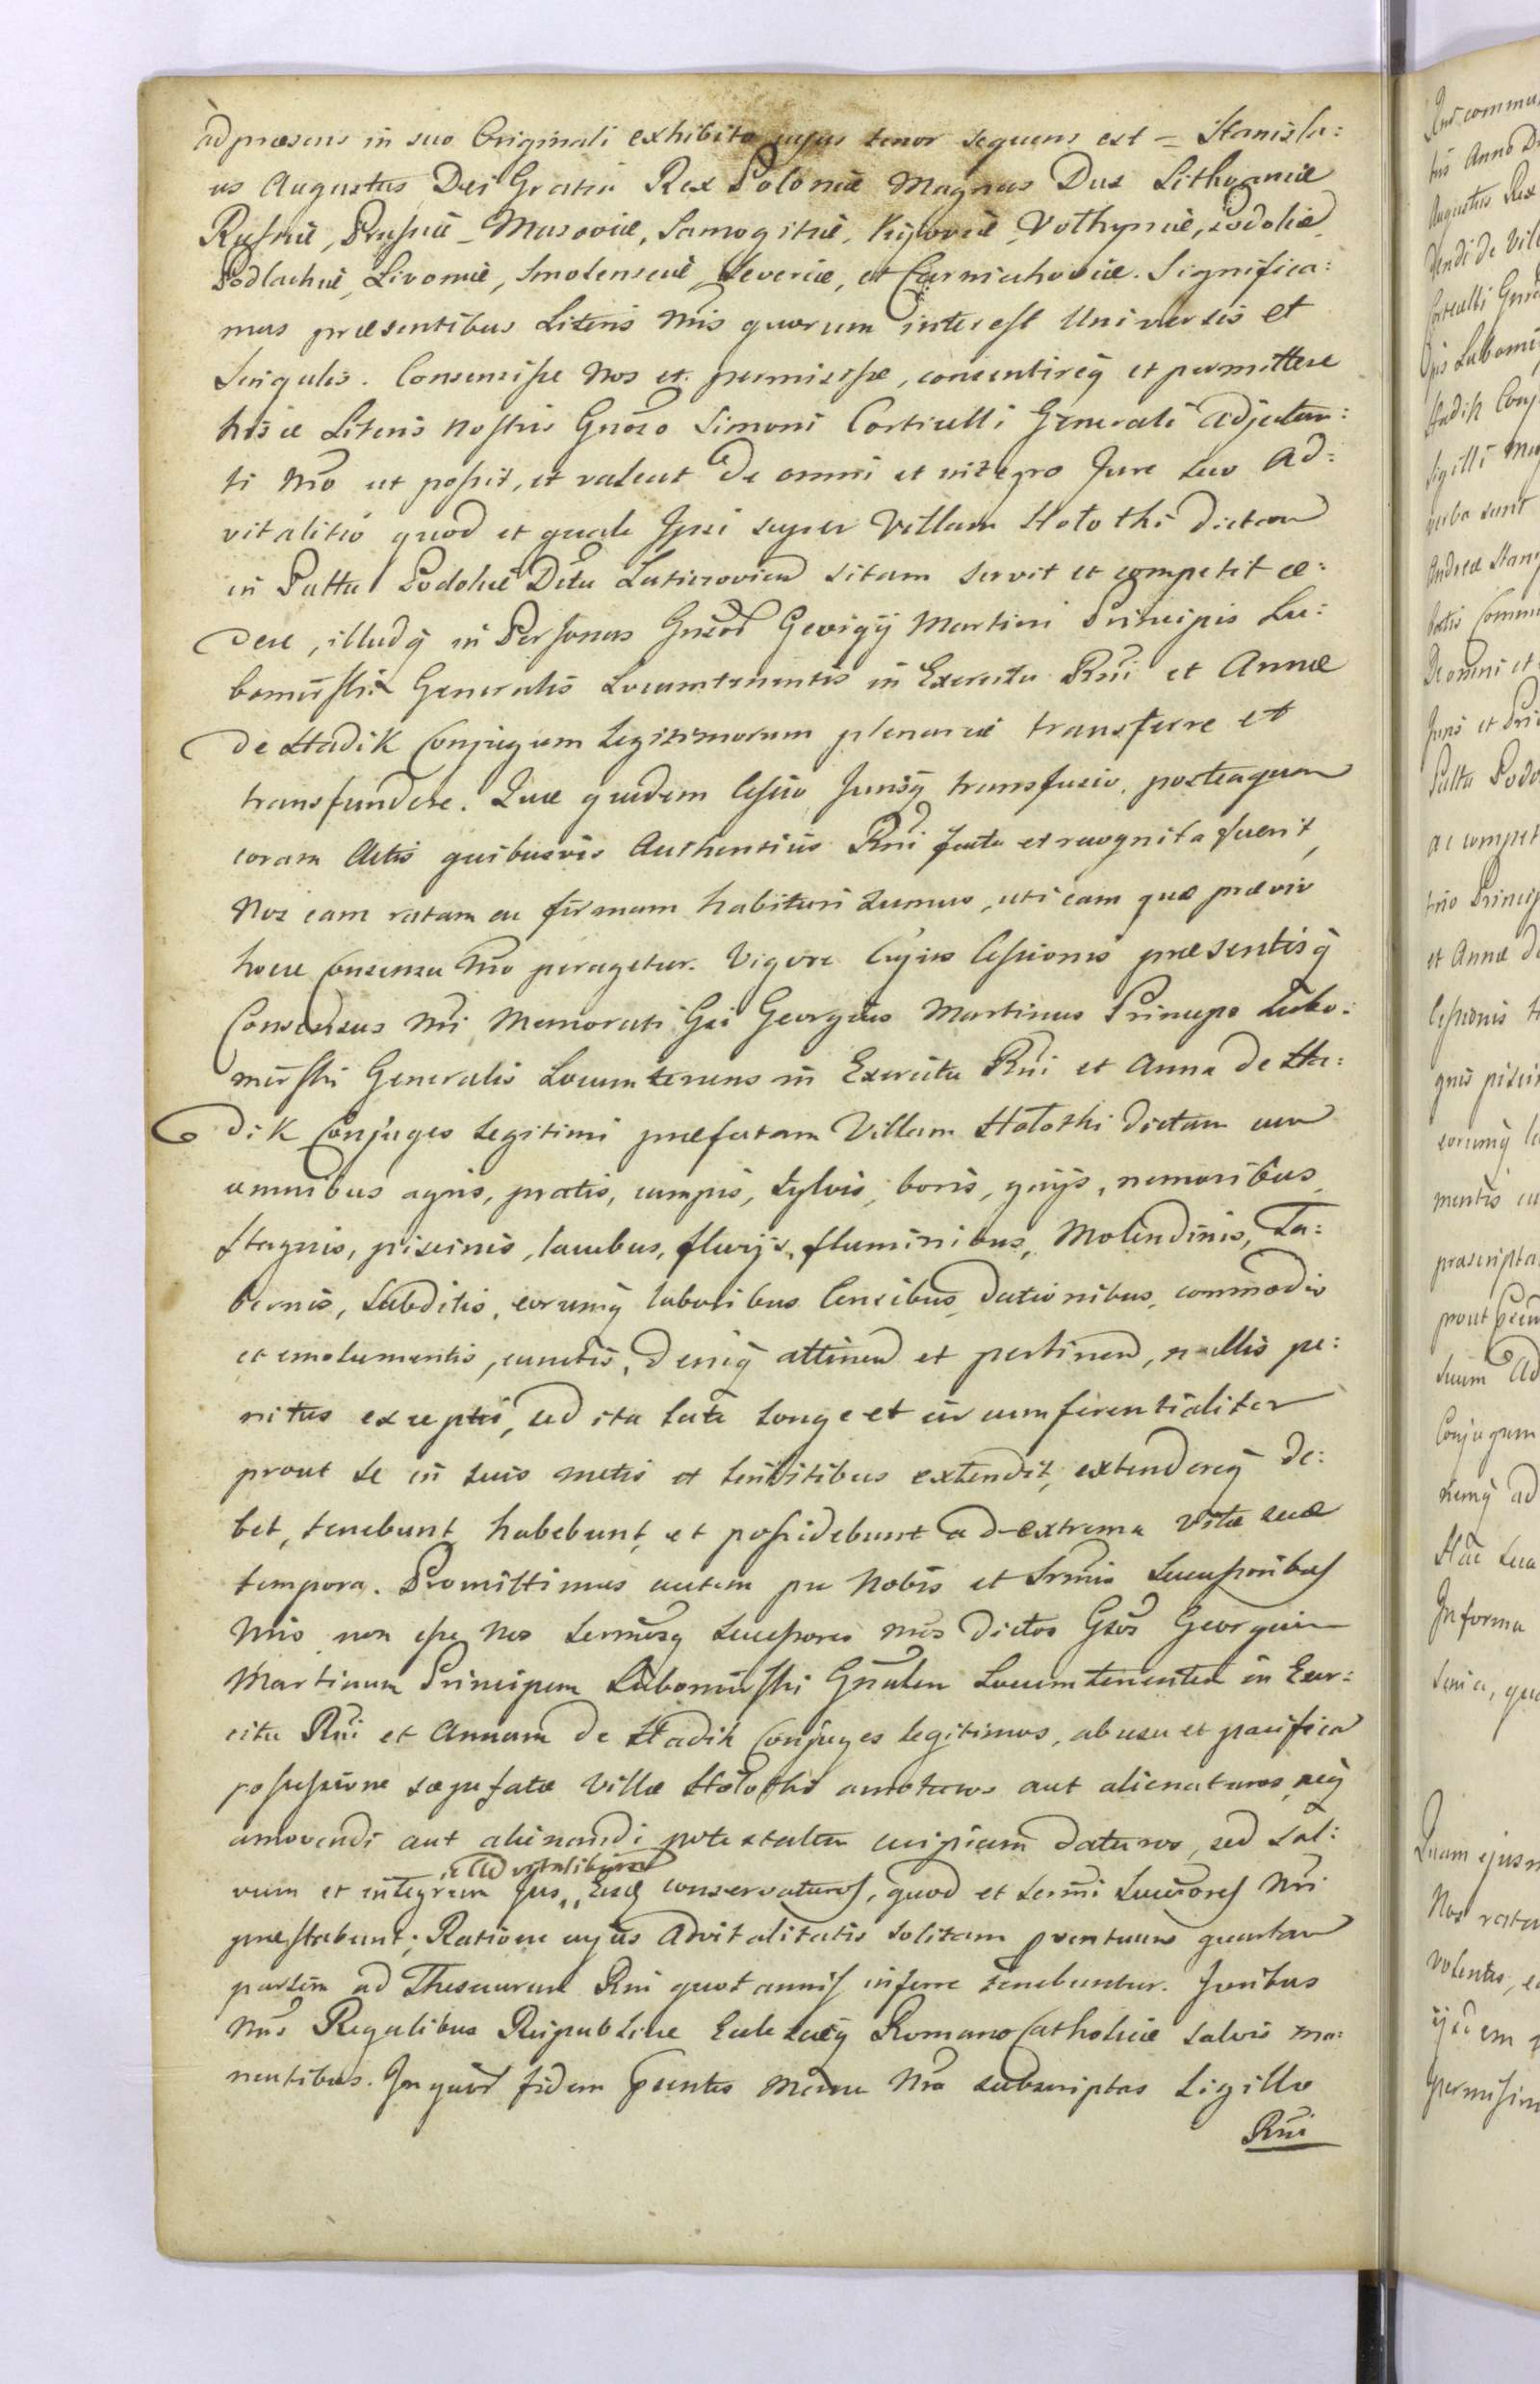 ad præsens in suo Originali exhibito cujus tenor sequens est = Stanisla:
us Augustus Dei Gratia Rex Poloniæ Magnus Dux Lithvaniæ
Rufsiæ, Prufsiæ Masoviæ, Samogitiæ, Kijoviæ, Volhyniæ, Podoliæ
Podlachiæ, Livoniæ, Smolensciæ Severiæ, et Czerniechoviæ. Significa:
mus præsentibus Literis Nris quorum interest Universis et
Singulis. Consensifse Nos et permisifse, consentireq et permittere
hisce Literis nostris Gnoso Simoni Corticelli Generali Adjutan:
ti Nro ut pofsit, et valeat de omni et integro Jure suo Ad:
vitalitio quod et quale Ipsi super Villam Holothi dictam
in Pallu Podoliæ Dttu Laticzovien sitam servit et competit ce:
dere, illudq in Personas Gnsor Georgij Martini Principis Lu:
bomirski Generalis Locumtenentis in Exercitu Rni et Annæ
de Hadik Conjugum Legitimorum plenarie transferre et
transfundere. Quæ quidem Cefsio Jurisq transfusio, posteaquam
coram Actis quibusvis Authenticis Rni facta et recognita fuerit,
Nos eam ratam ac firmam habituri sumus, uti eam quæ prævio
hocce Consensu Nro peragetur. Vigore Cujus Cefsionis præsentisq
Consensus Nri Memorati Gsi Georgius Martinus Princeps Lubo:
mirski Generalis Locumtenens in Exercitu Rni et Anna de Ha:
dik Conjuges Legitimi præfatam Villam Holothi dictam cum
omnibus agris, pratis, campis, sylvis, boris, gaijs, nemoribus,
stagnis, piscinis, lacubus, fluvijs, fluminibus, Molendinis, Ta:
bernis, Subditis, eorumq laboribus Censibus, dationibus, commodis
et emolumentis, cunctis, deniq attinen et pertinen, nullis pe:
nitus exceptis, sed ita late longe et circumferentialiter
prout se in suis metis et limitibus extendit, extendereq de:
bet, tenebunt, habebunt, et pofsidebunt ad extrema vitæ suæ
tempora. Promittimus autem pro Nobis et Srmis Succefsoribus
Nris non efse Nos Sermosq Succefsores nros dictos Gsos Georgium
Martinum Principem Lubomirski Gnalem Locumtenentem in Exer:
citu Rni et Annam de Hadik Conjuges legitimos, ab usu et pacifica
pofsefsione sæpefatæ Villæ Holothi amoturos aut alienaturos neq
amovendi aut alienandi potestatem cuipiam daturos, sed Sal:
vum et integrum Jus „ Advitalitium „ Eisd conservaturos, quod et Sermi Succores Nri
præstabunt; Ratione cujus Advitalitatis solitam proventuum quartam
partem ad Thesaurum Rni quotannis inferre tenebuntur. Juribus
Nris Regalibus Reipublicæ Ecclesiæq Romano Catholicæ salvis ma:
nentibus. In quor fidem pæntes Manu Nra subscriptas Sigillo
Rni